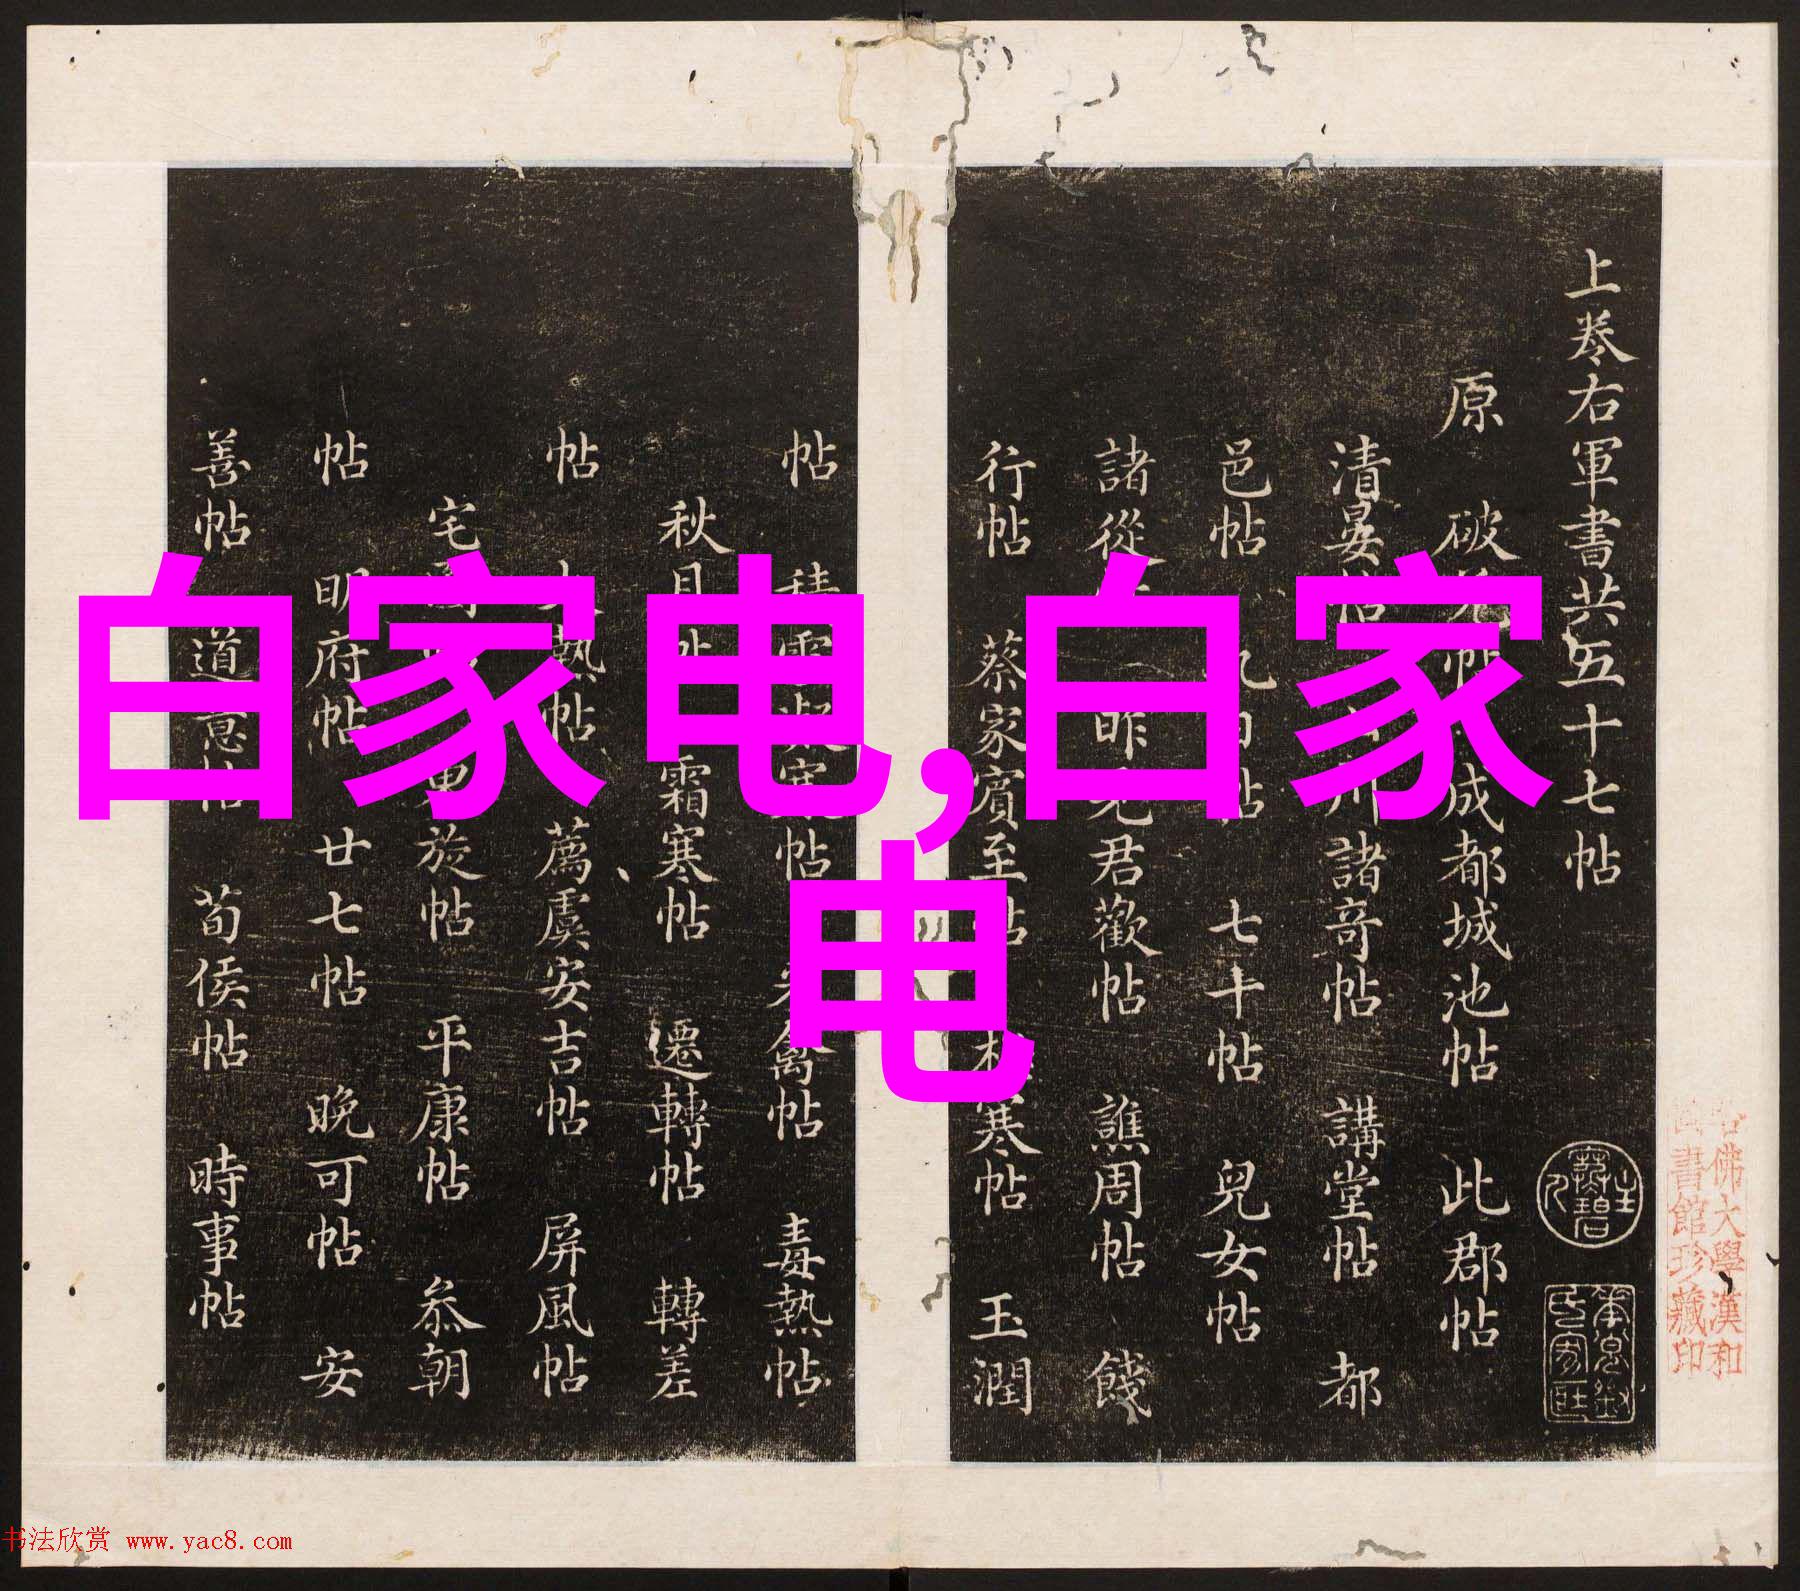 白家电,白家
电
上卷右軍書共五十七帖
原
破羌帖 成都城池帖 此郡帖
清晏帖 諸奇帖 講堂帖 都
邑帖 七十帖 兒女帖
諸從 昨見君歡帖 譙周帖 餞
行帖 蔡家賓至帖 寒帖 玉潤
帖 帖 禽帖 毒熱帖
秋月 霜寒帖 遷轉帖 轉差
帖 熱帖 薦虞安吉帖 屏風帖
宅 旋帖 平康帖 叅朝
帖 明府帖 廿七帖 晚可帖 安
善帖 道意帖 荀侯帖 時事帖
佛大學漢和
書館珍藏印
书法欣赏 www.yac8.com